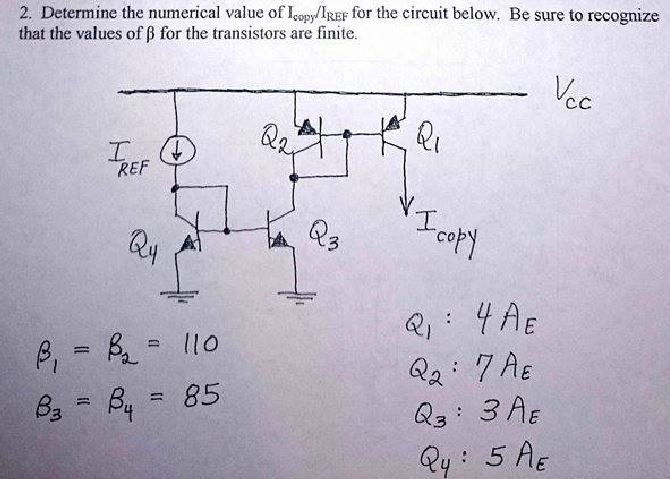 2. Determine the numerical value of Icopy/IREF for the circuit below. Be sure to recognize
that the values of β for the transistors are finite.
Vcc
IREF
Q2
Q1
Icopy
Q4
Q3
β1 = β2 = 110
β3 = β4 = 85
Q1 : 4 AE
Q2 : 7 AE
Q3 : 3 AE
Q4 : 5 AE